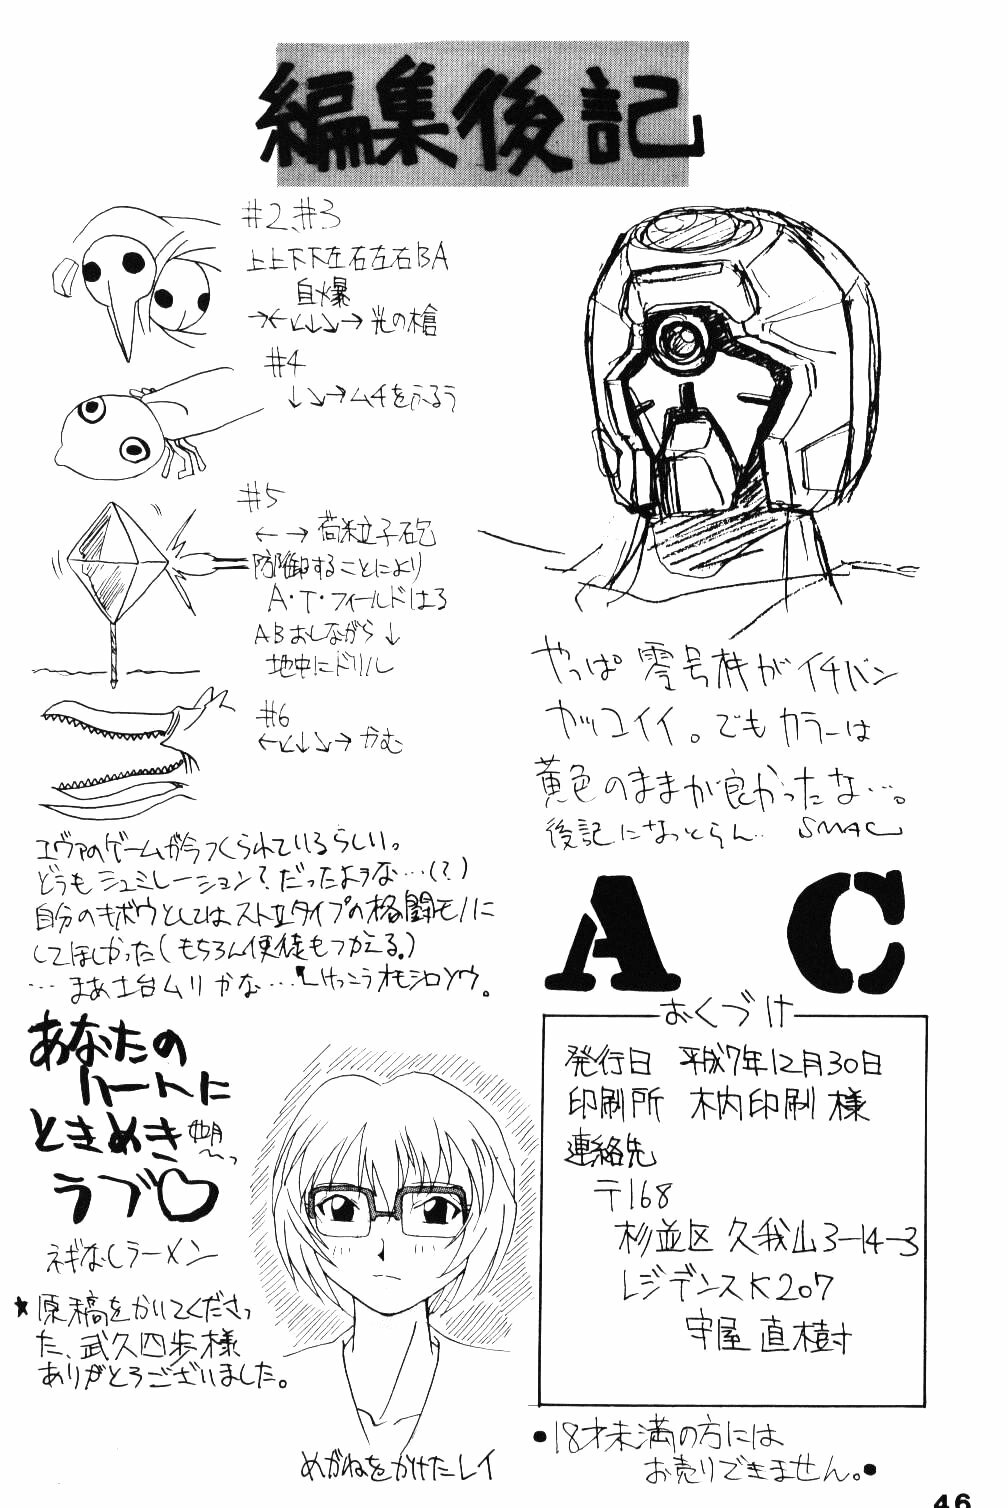 編集後記
#2,#3
上上下下左右左右BA
自爆
→←↙↓↘→ 光の槍
#4
↓↘→ムチをふるう
#5
← → 荷粒子砲
防御することにより
A・T・フィールドはる
ABおしながら↓
地中にドリル
#6
←↙↓↘→ かむ
エヴァのゲームが今つくられているらしい。
どうもシュミレーション?だったよヲな…(?)
自分のキボウとしてはストIIタイプの格闘モノに
してほしかった(もちろん使徒もつかえる。)
…まあ土台ムリかな…けっこうオモシロソウ。
やっぱ零号機がイチバン
カッコイイ。でもカラーは
黄色のままが良かったな…。
後記になっとらん… SMAC
あなたの
ハートに
ときめき
ラブ♡
ネギなしラーメン
★原稿をかいてくださっ
た、武久四歩様
ありがとうございました。
めがねをかけたレイ
AC
おくづけ
発行日 平成7年12月30日
印刷所 木内印刷 様
連絡先
〒168
杉並区 久我山3-14-3
レジデンスK207
守屋 直樹
●18才未満の方には
お売りできません。●
46